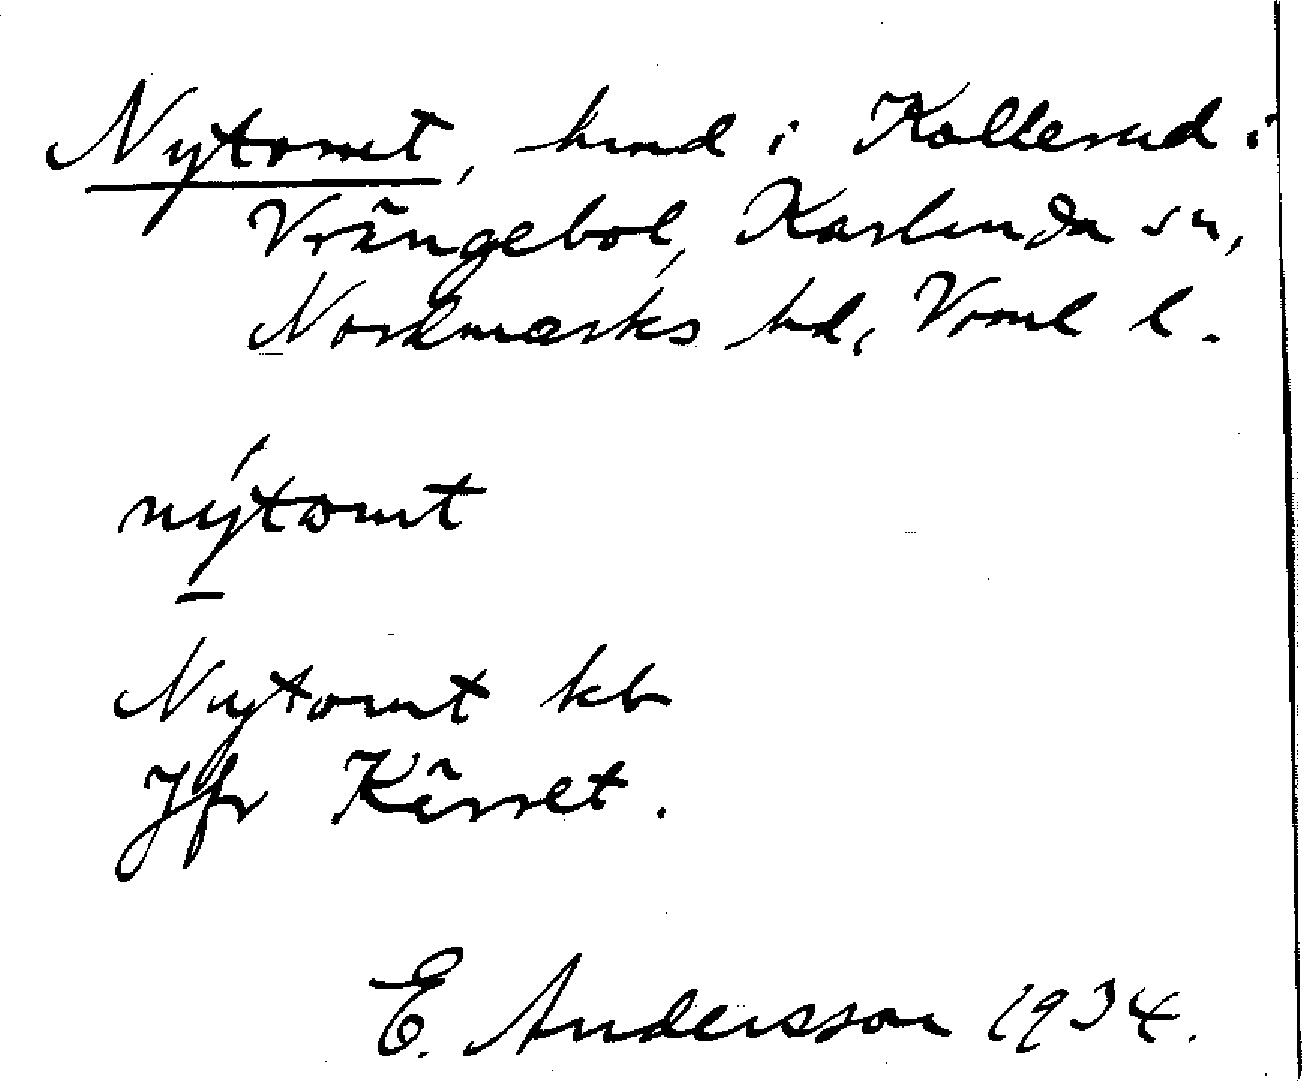 Nytomt, hmd i Kollerud i
Vrängebol, Karlanda sn,
Nordmarks hd, Vrml l.
nýtomt
Nytomt kb
Jfr Kärret.
E. Andersson 1934.